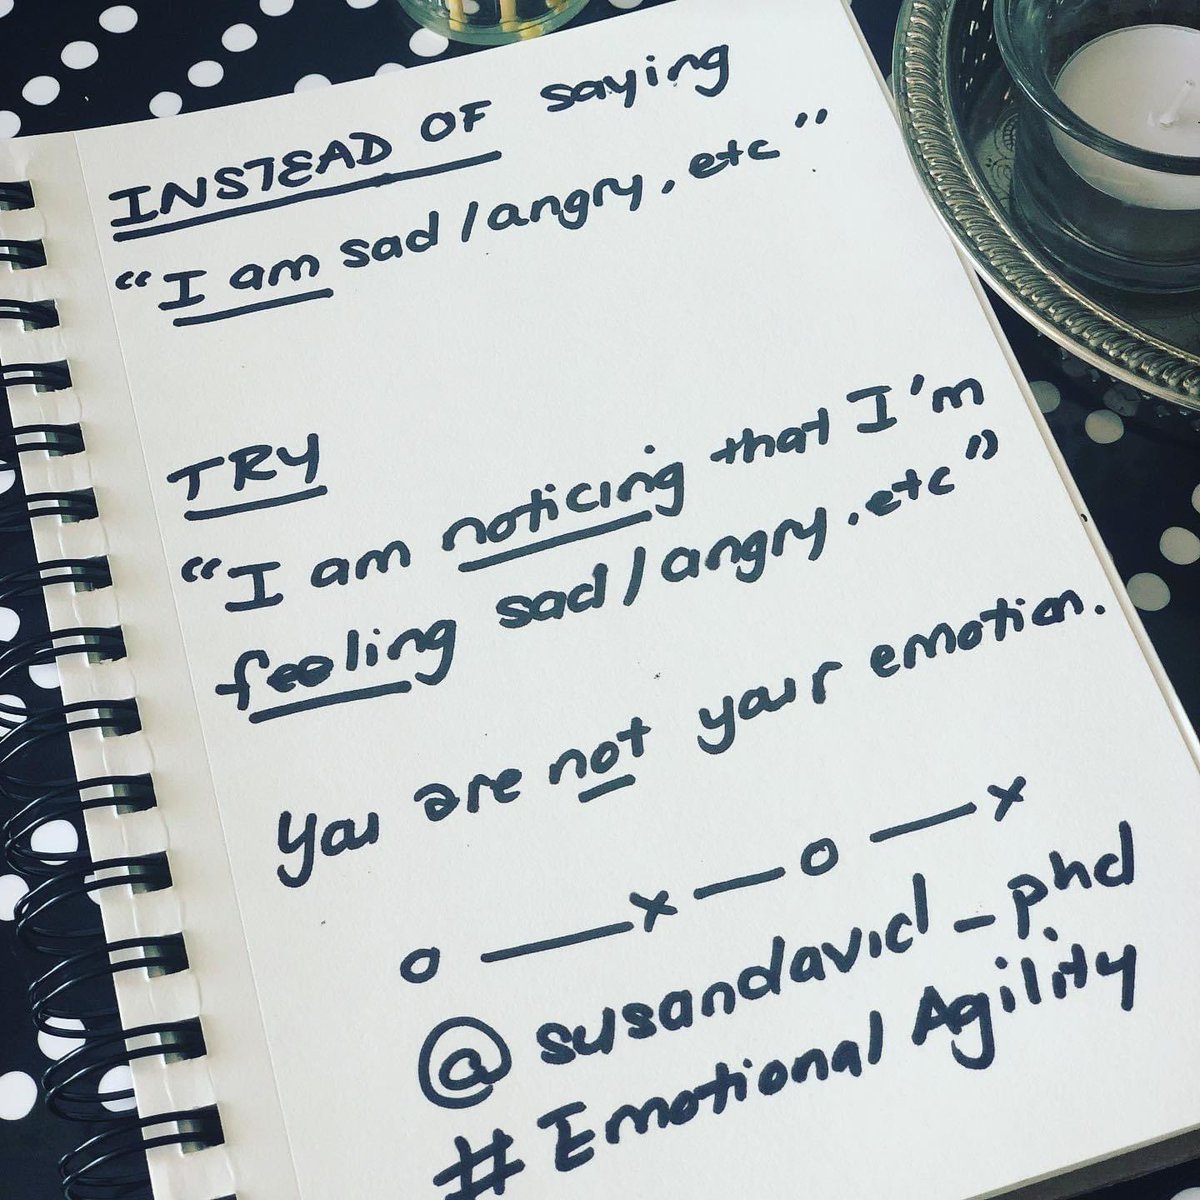 INSTEAD OF saying
“I am sad/angry, etc”
TRY
“I am noticing that I'm
feeling sad/angry, etc”
You are not your emotion.
o — x — o — x
@susandavid_phd
#Emotional Agility